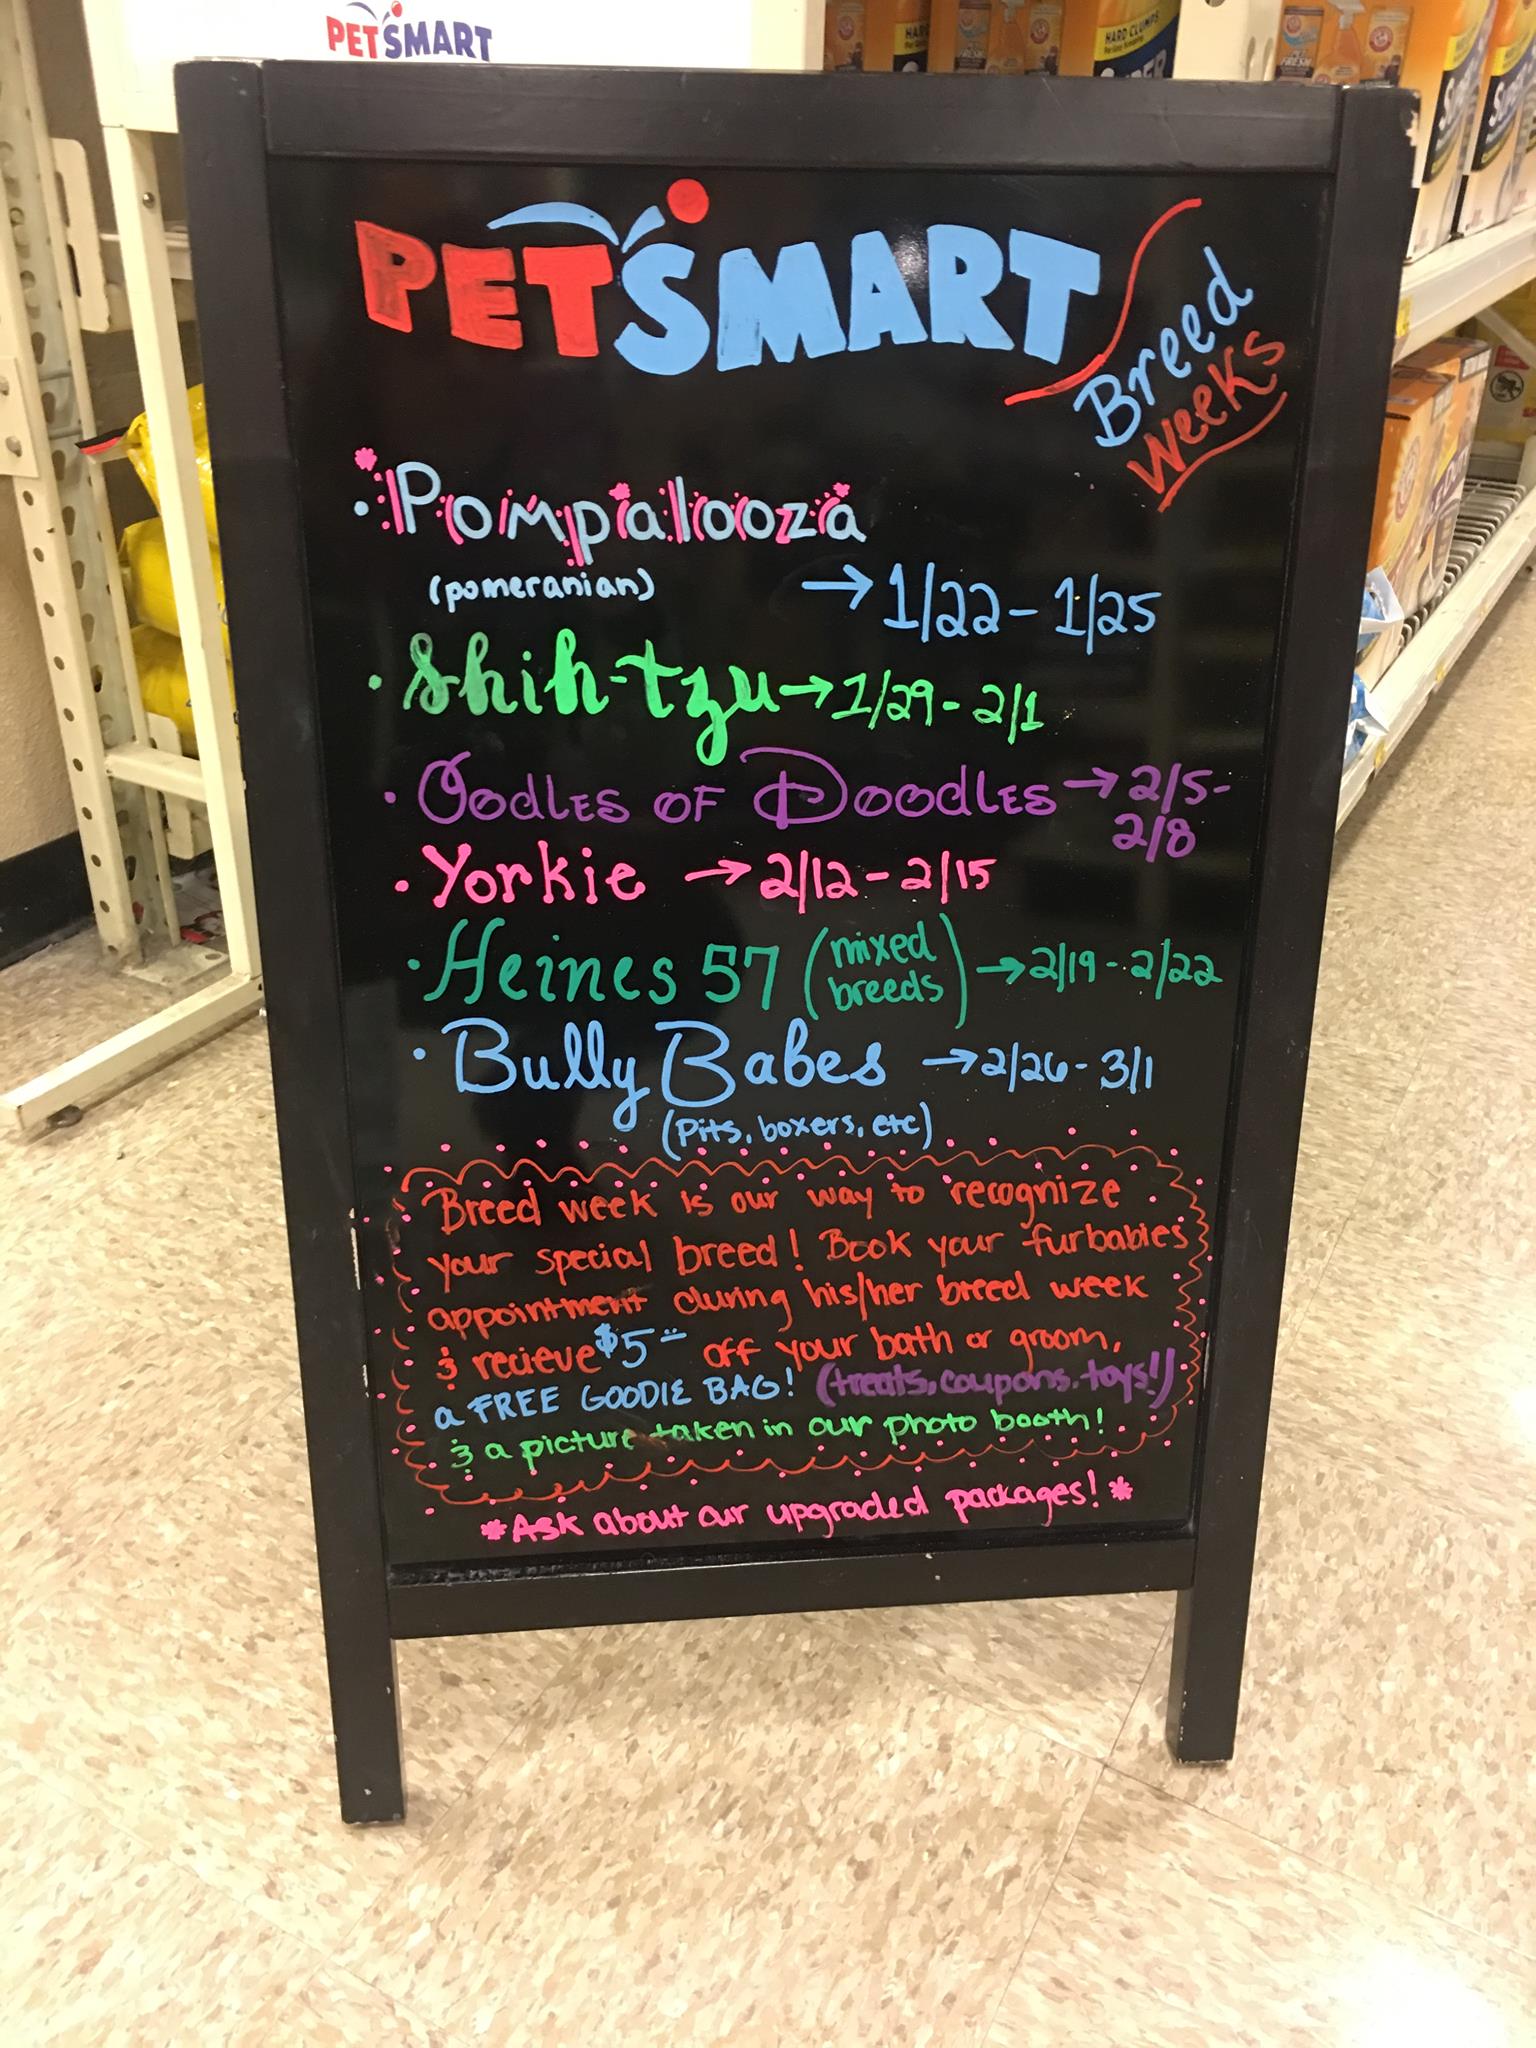 PETSMART
HARD CLUMPS
HARD CLUMPS
PETSMART
Breed
Weeks
• Pompalooza
(pomeranian)
→ 1/22 - 1/25
• Shih-tzu → 1/29 - 2/1
• Oodles of Doodles → 2/5 -
2/8
• Yorkie → 2/12 - 2/15
• Heines 57 (mixed breeds) → 2/19 - 2/22
• Bully Babes → 2/26 - 3/1
(Pits, boxers, etc)
Breed week is our way to recognize
your special breed! Book your furbabies
appointment during his/her breed week
& recieve $5 off your bath or groom,
a FREE GOODIE BAG! (treats, coupons, toys!)
& a picture taken in our photo booth!
*Ask about our upgraded packages!*